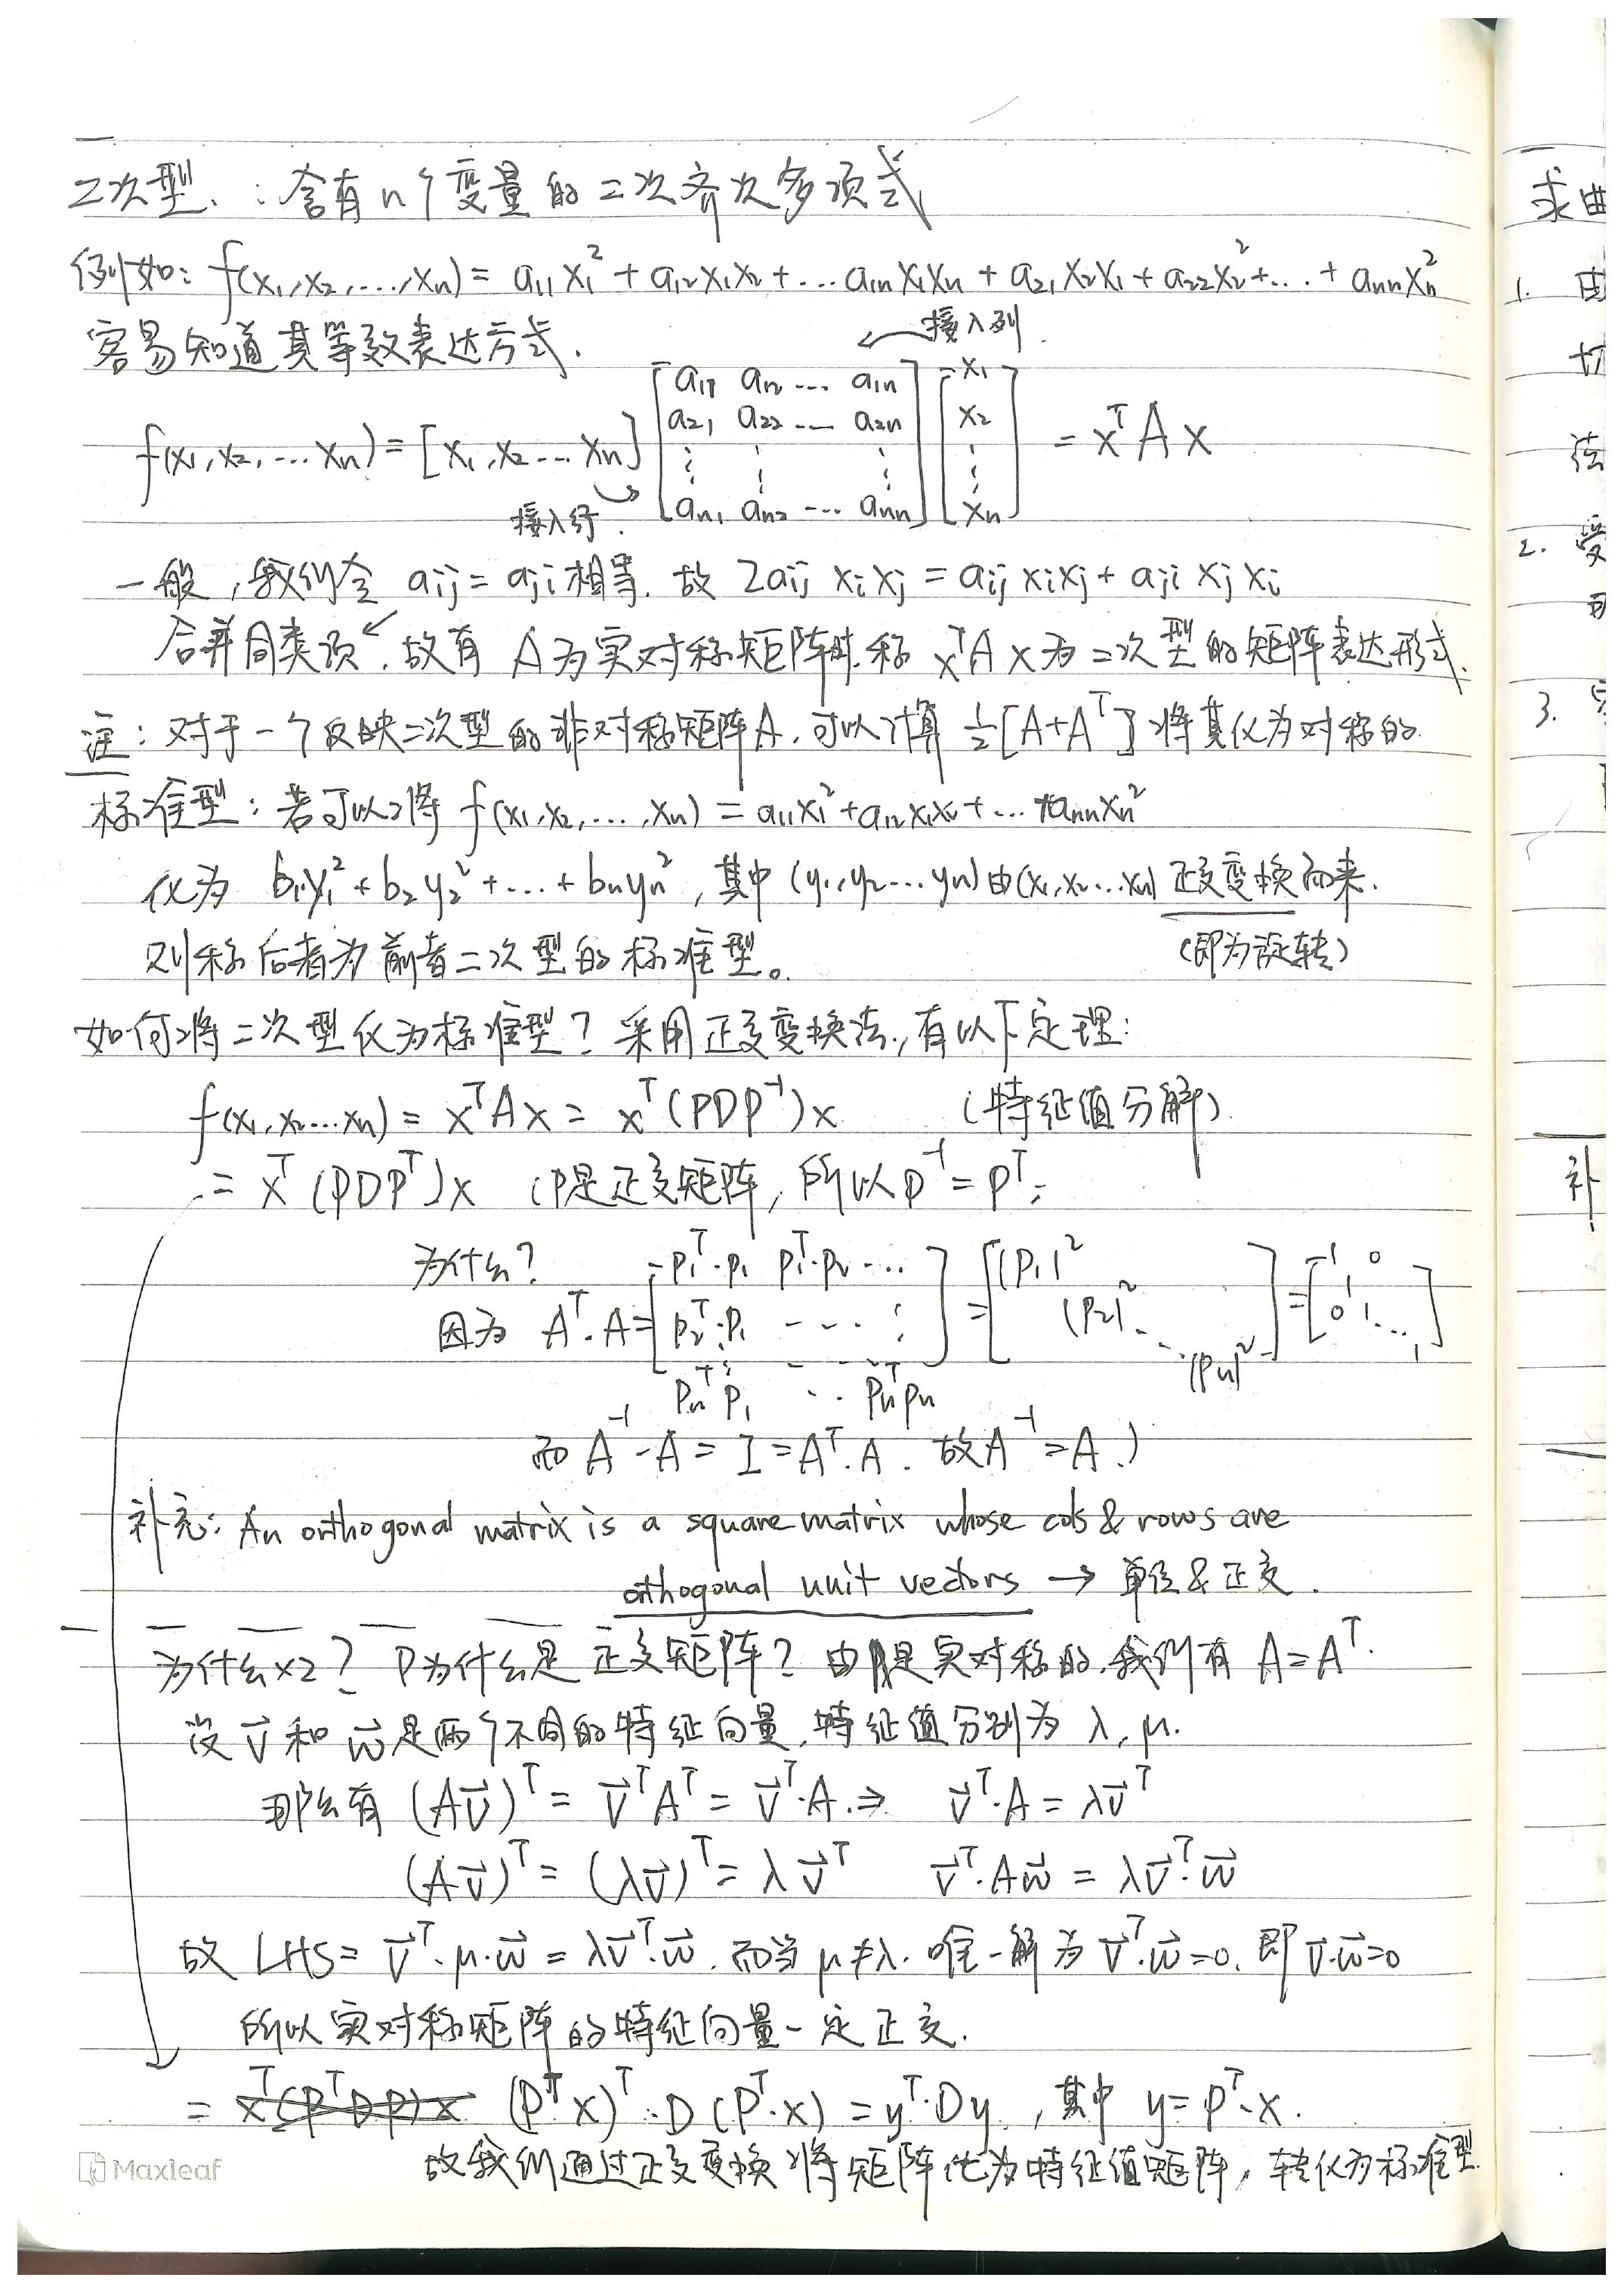 二次型：含有n个变量的二次齐次多项式
例如：f(x₁,x₂,...,xₙ) = a₁₁x₁² + a₁₂x₁x₂ + ... a₁ₙx₁xₙ + a₂₁x₂x₁ + a₂₂x₂² + ... + aₙₙxₙ²
容易知道其等效表达方式.
← 接入列
f(x₁,x₂,...xₙ) = [x₁,x₂...xₙ] [a₁₁ a₁₂ ... a₁ₙ; a₂₁ a₂₂ ... a₂ₙ; ⋮ ⋮ ⋮; aₙ₁ aₙ₂ ... aₙₙ] [x₁; x₂; ⋮; xₙ] = xᵀAx
接入行
一般，我们令 aij = aji 相等. 故 2aij xixj = aij xixj + aji xjxi
合并同类项↙. 故有 A为实对称矩阵时, 称 xᵀAx 为二次型的矩阵表达形式.
注：对于一个反映二次型的非对称矩阵A, 可以计算 ½[A+Aᵀ] 将其化为对称的
标准型：若可以将 f(x₁,x₂,...,xₙ) = a₁₁x₁² + a₁₂x₁x₂ + ... + aₙₙxₙ²
化为 b₁y₁² + b₂y₂² + ... + bₙyₙ², 其中 (y₁,y₂...yₙ) 由 (x₁,x₂...xₙ) 正交变换而来.
则称后者为前者二次型的标准型。 (即为旋转)
如何将二次型化为标准型？采用正交变换法, 有以下定理：
f(x₁,x₂...xₙ) = xᵀAx = xᵀ(PDP⁻¹)x (特征值分解).
= xᵀ(PDPᵀ)x (P是正交矩阵, 所以 P⁻¹ = Pᵀ;
为什么？
因为 Aᵀ·A = [p₁ᵀ·p₁ p₁ᵀ·p₂ ...; p₂ᵀ·p₁ ... ⋮; pₙᵀp₁ ... pₙᵀpₙ] = [|p₁|² |p₂|² ... |pₙ|²] = [1 0 1 0 1 ... 1]
而 A⁻¹·A = I = Aᵀ·A. 故 A⁻¹ = A.)
补充：An orthogonal matrix is a square matrix whose cols & rows are
orthogonal unit vectors → 单位 & 正交.
为什么×2？P为什么是正交矩阵？由A是实对称的, 我们有 A = Aᵀ.
设 v⃗ 和 w⃗ 是两个不同的特征向量, 特征值分别为 λ, μ.
那么有 (Av⃗)ᵀ = v⃗ᵀAᵀ = v⃗ᵀ·A. ⇒ v⃗ᵀ·A = λv⃗ᵀ
(Av⃗)ᵀ = (λv⃗)ᵀ = λv⃗ᵀ v⃗ᵀ·Aw⃗ = λv⃗ᵀ·w⃗
故 LHS = v⃗ᵀ·μ·w⃗ = λv⃗ᵀ·w⃗. 而当 μ≠λ. 唯一解为 v⃗ᵀ·w⃗ = 0. 即 v⃗·w⃗ = 0
所以实对称矩阵的特征向量一定正交.
= xᵀ(PᵀDP)x (Pᵀx)ᵀ·D(Pᵀ·x) = yᵀ·Dy, 其中 y = Pᵀ·x.
故我们通过正交变换将矩阵化为特征值矩阵, 转化为标准型
Maxleaf
求曲
1.
切
法
2.
3.
补